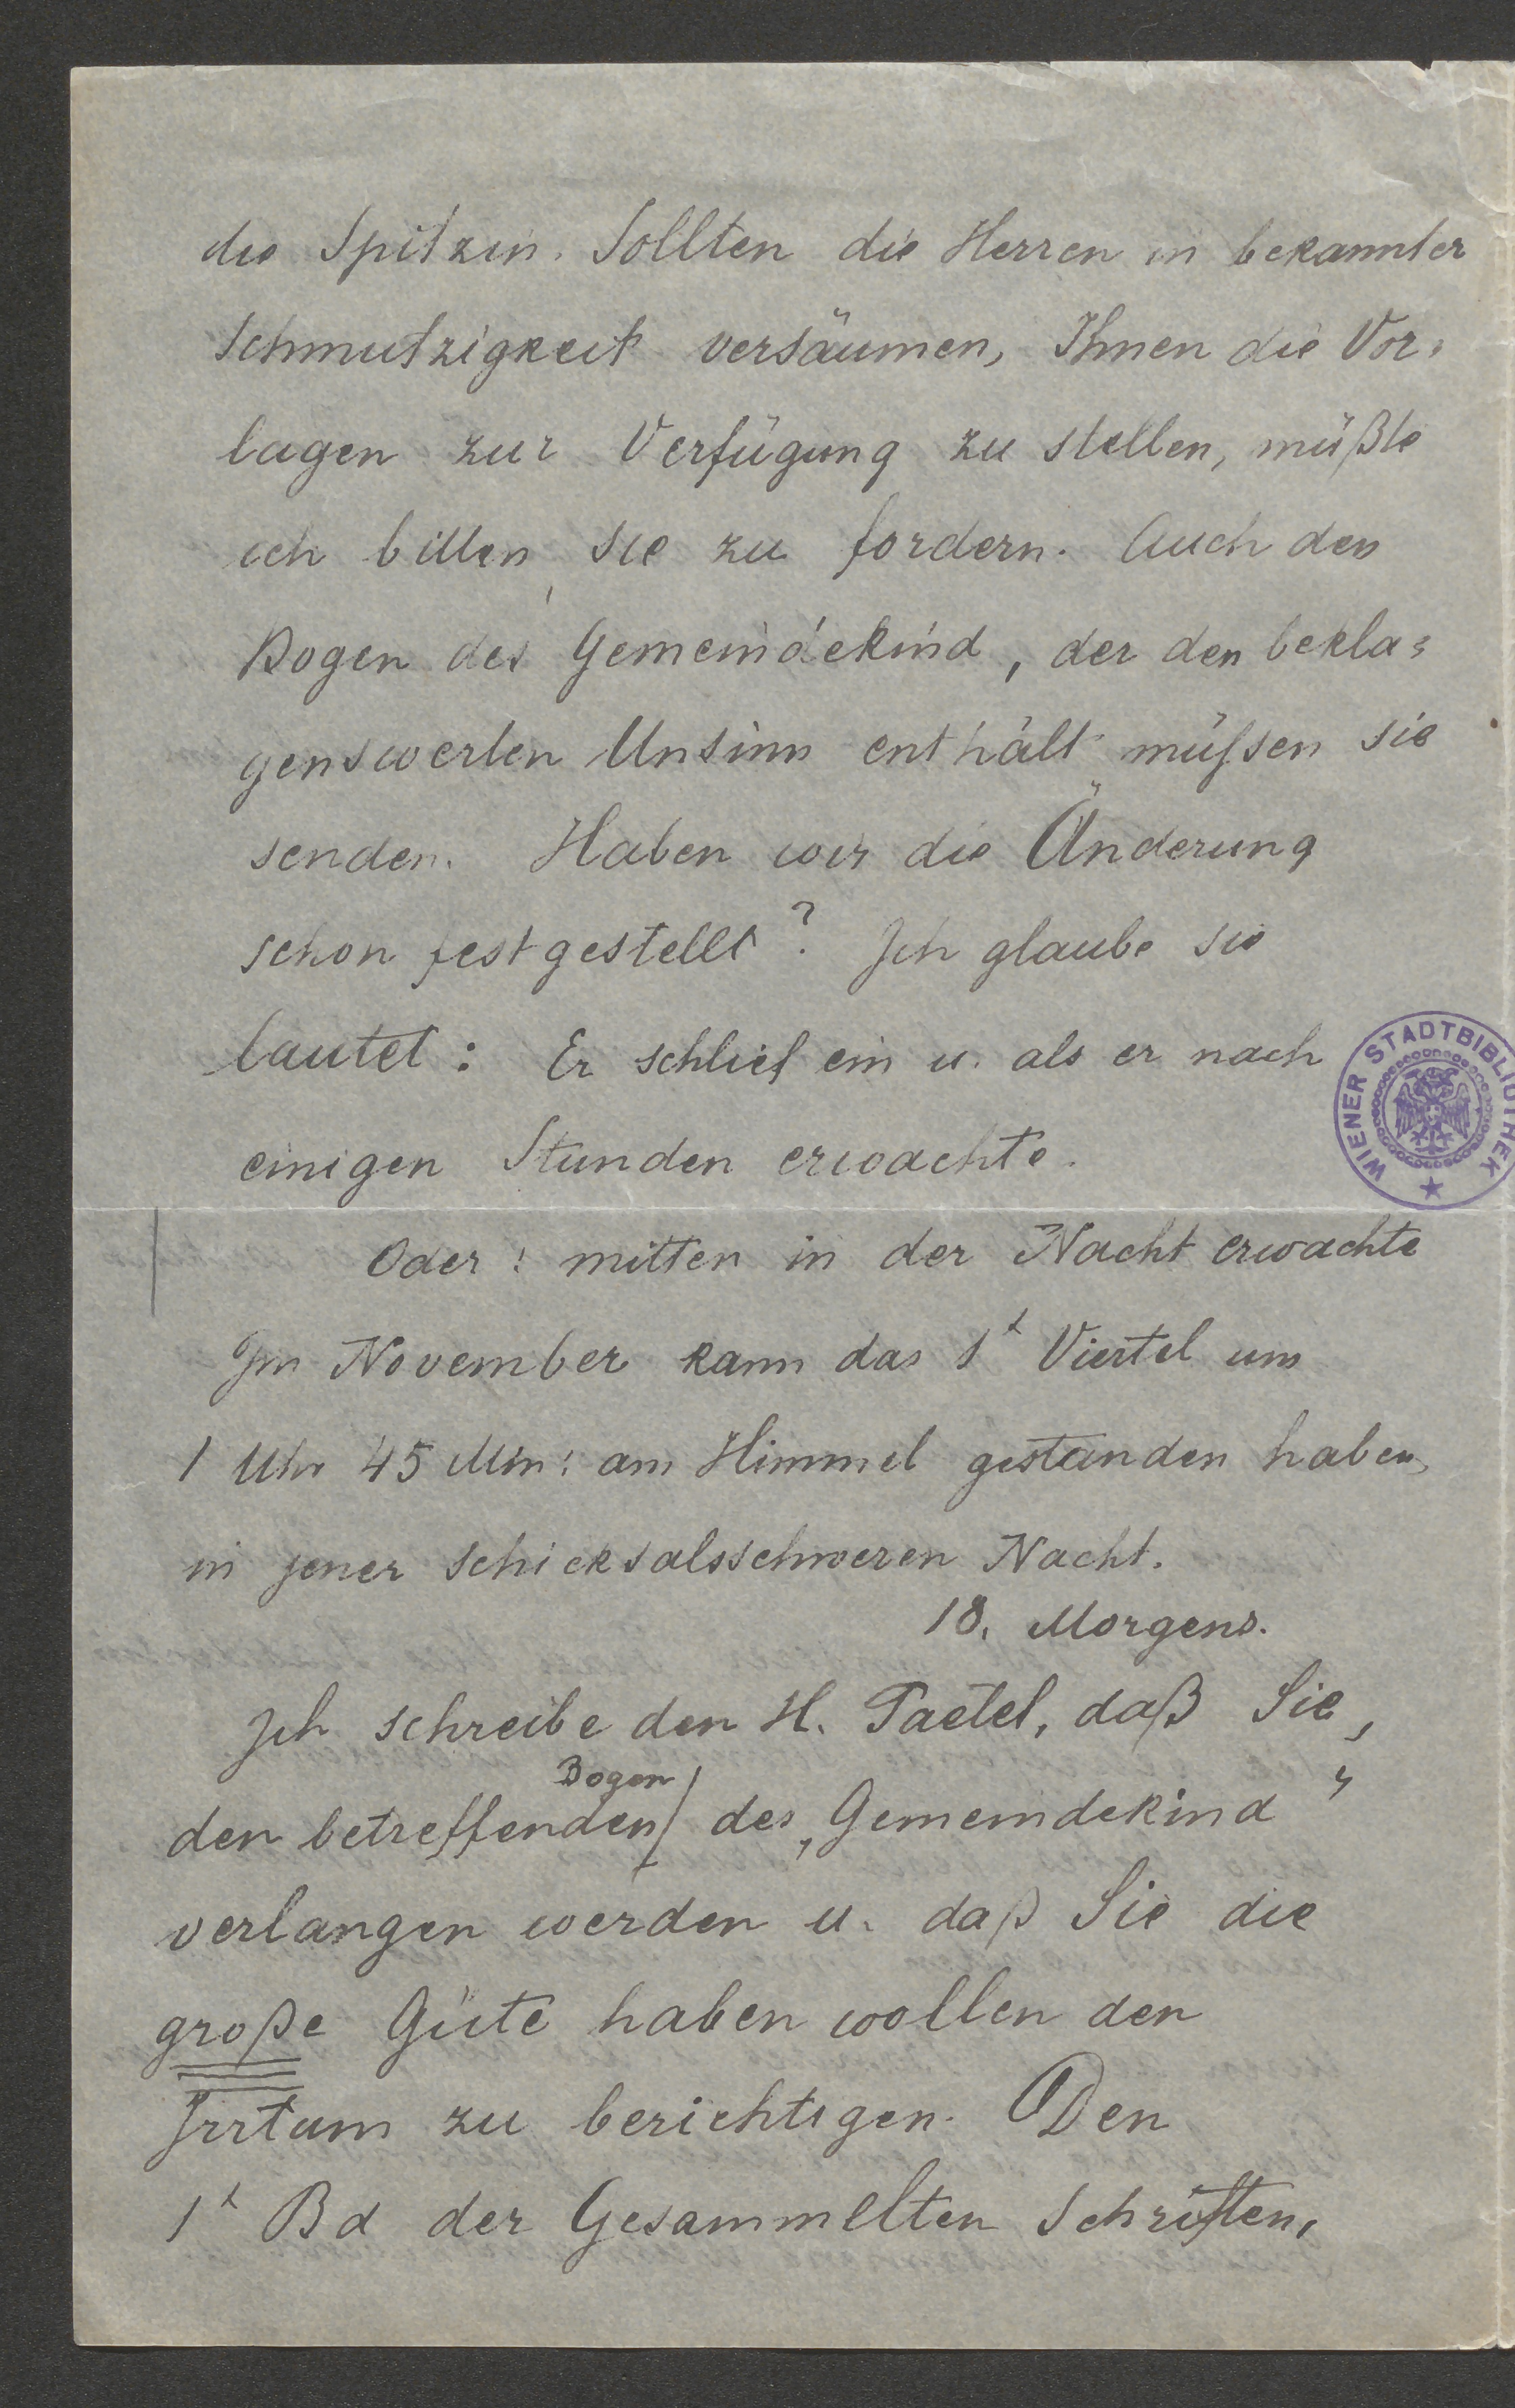 die Spitzin. Sollten die Herren in bekannter
Schmutzigkeit versäumen, Ihnen die Vor=
lagen zur Verfügung zu stellen, müßte
ich bitten, sie zu fordern. Auch den
Bogen des Gemeindekind, der den bekla=
genswerten Unsinn enthält müssen sie
senden. Haben wir die Änderung
schon festgestellt? Ich glaube sie
lautet: Er schlief ein u. als er nach
einigen Stunden erwachte.
Oder: mitten in der Nacht erwachte
Im November kann das 1t Viertel um
1 Uhr 45 Min: am Himmel gestanden haben,
in jener schicksalsschweren Nacht.
18. Morgens.
Ich schreibe den H. Paetel, daß Sie,
den betreffenden Bogen des „Gemeindekind"
verlangen werden u. daß Sie die
große Güte haben wollen den
Irrtum zu berichtigen. Den
1t Bd der Gesammelten Schriften,
WIENER STADTBIBLIOTHEK